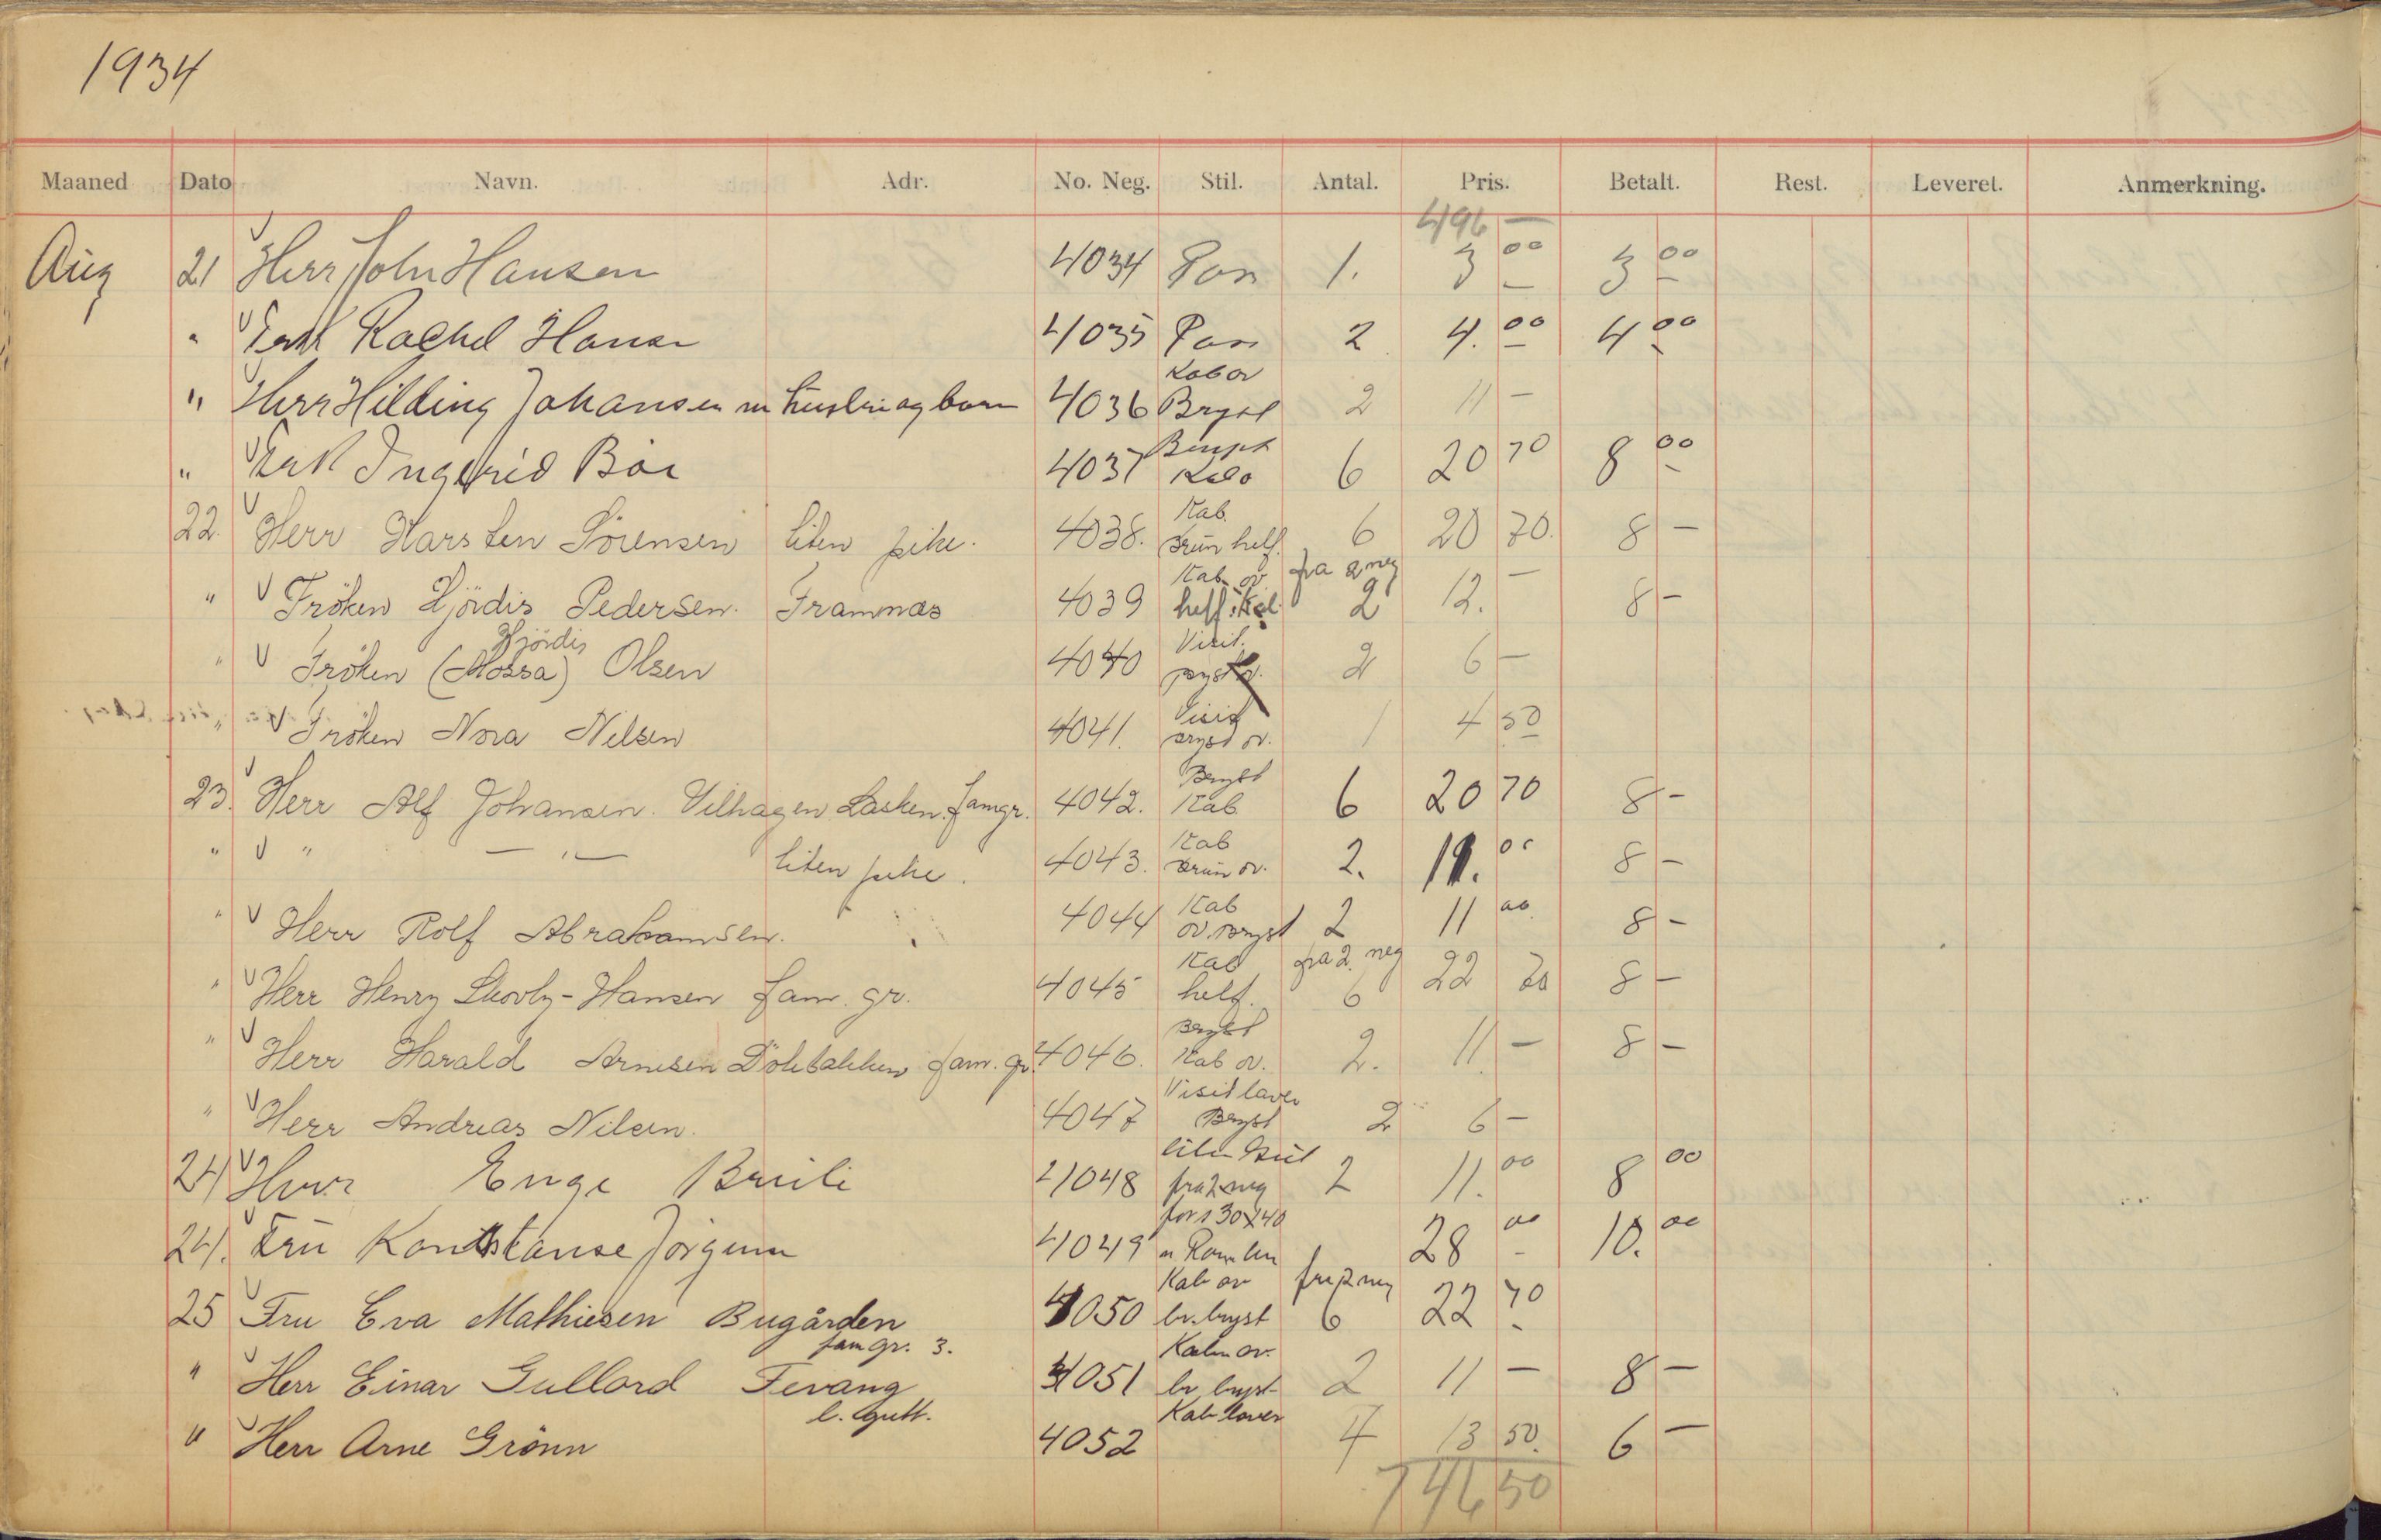 1934
Maaned Dato Navn. Adr. No. Neg. Stil. Antal. Pris. Betalt. Rest. Leveret. Anmerkning.
496 —
Aug 21 Herr John Hansen 4034 Pan 1. 3 00 3 00
" Rachel Hansen 4035 Pan 2 4. 00 4 00
Kab ov
" Herr Hilding Johansen m hustru og barn 4036 Bryst 2 11 -
" Ingrid Bøe 4037 Bryst Kab 6 20 70 8 00
Kab.
22. Herr Karsten Sörensen liten pike. 4038. brun helf. 6 20 70. 8 -
Kab. ov. fra 2 neg
" Fröken Hjördis Pedersen. Framnæs 4039 helf. 2 12. - 8 -
Hjördis Visit.
" Fröken (Mossa) Olsen 4040 bryst 2 6 -
Visit
" Fröken Nora Nilsen 4041. bryst ov. 1 4 50
Bryst
23. Herr Alf Johansen. Vilhagen Lasken. famgr. 4042. Kab 6 20 70 8 -
Kab
" " — " — liten pike. 4043. brun ov. 2. 11. 00 8 -
Kab
" Herr Rolf Abrahamsen. 4044 ov. bryst 2 11 00 8 -
Kab fra 2. neg
" Herr Henry Skovly-Hansen fam. gr. 4045 helf. 6 22 70 8 -
Bryst
" Herr Harald Arnesen fam. gr. 4046. Kab ov. 2. 11. - 8 -
Visit laver
" Herr Andreas Nilsen. 4047 Bryst 2 6 -
24 Herr Enge Bruli 4048 fra 2 neg 2 11. 00 8 00
fors 30x40
24. Fru Konstanse Jörgensen 4049 m Ramme 28 00 10. 00
Kab ov fra 2 neg
25 Fru Eva Mathiesen Bugården 4050 br. bryst 6 22 70
fam gr. 3. Kab ov.
" Herr Einar Gullord Fevang 4051 br bryst 2 11 - 8 -
l. gutt. Kab laver
" Herr Arne Grönn 4052 4 13 50. 6 -
746 50